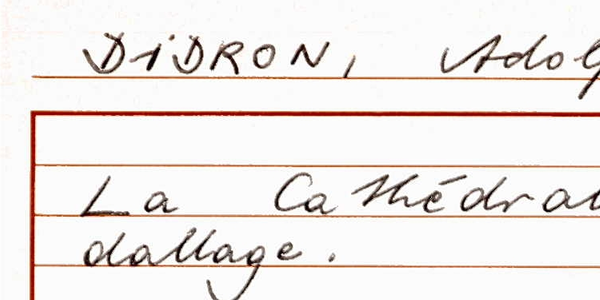 DIDRON, Adolp
La Cathédral
dallage.